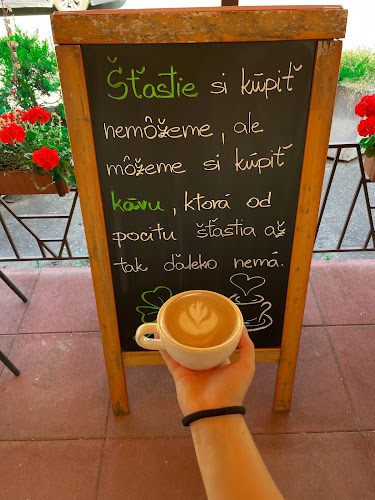 Šťastie si kúpiť
nemôžeme, ale
môžeme si kúpiť
kávu, ktorá od
pocitu šťastia až
tak ďaleko nemá.